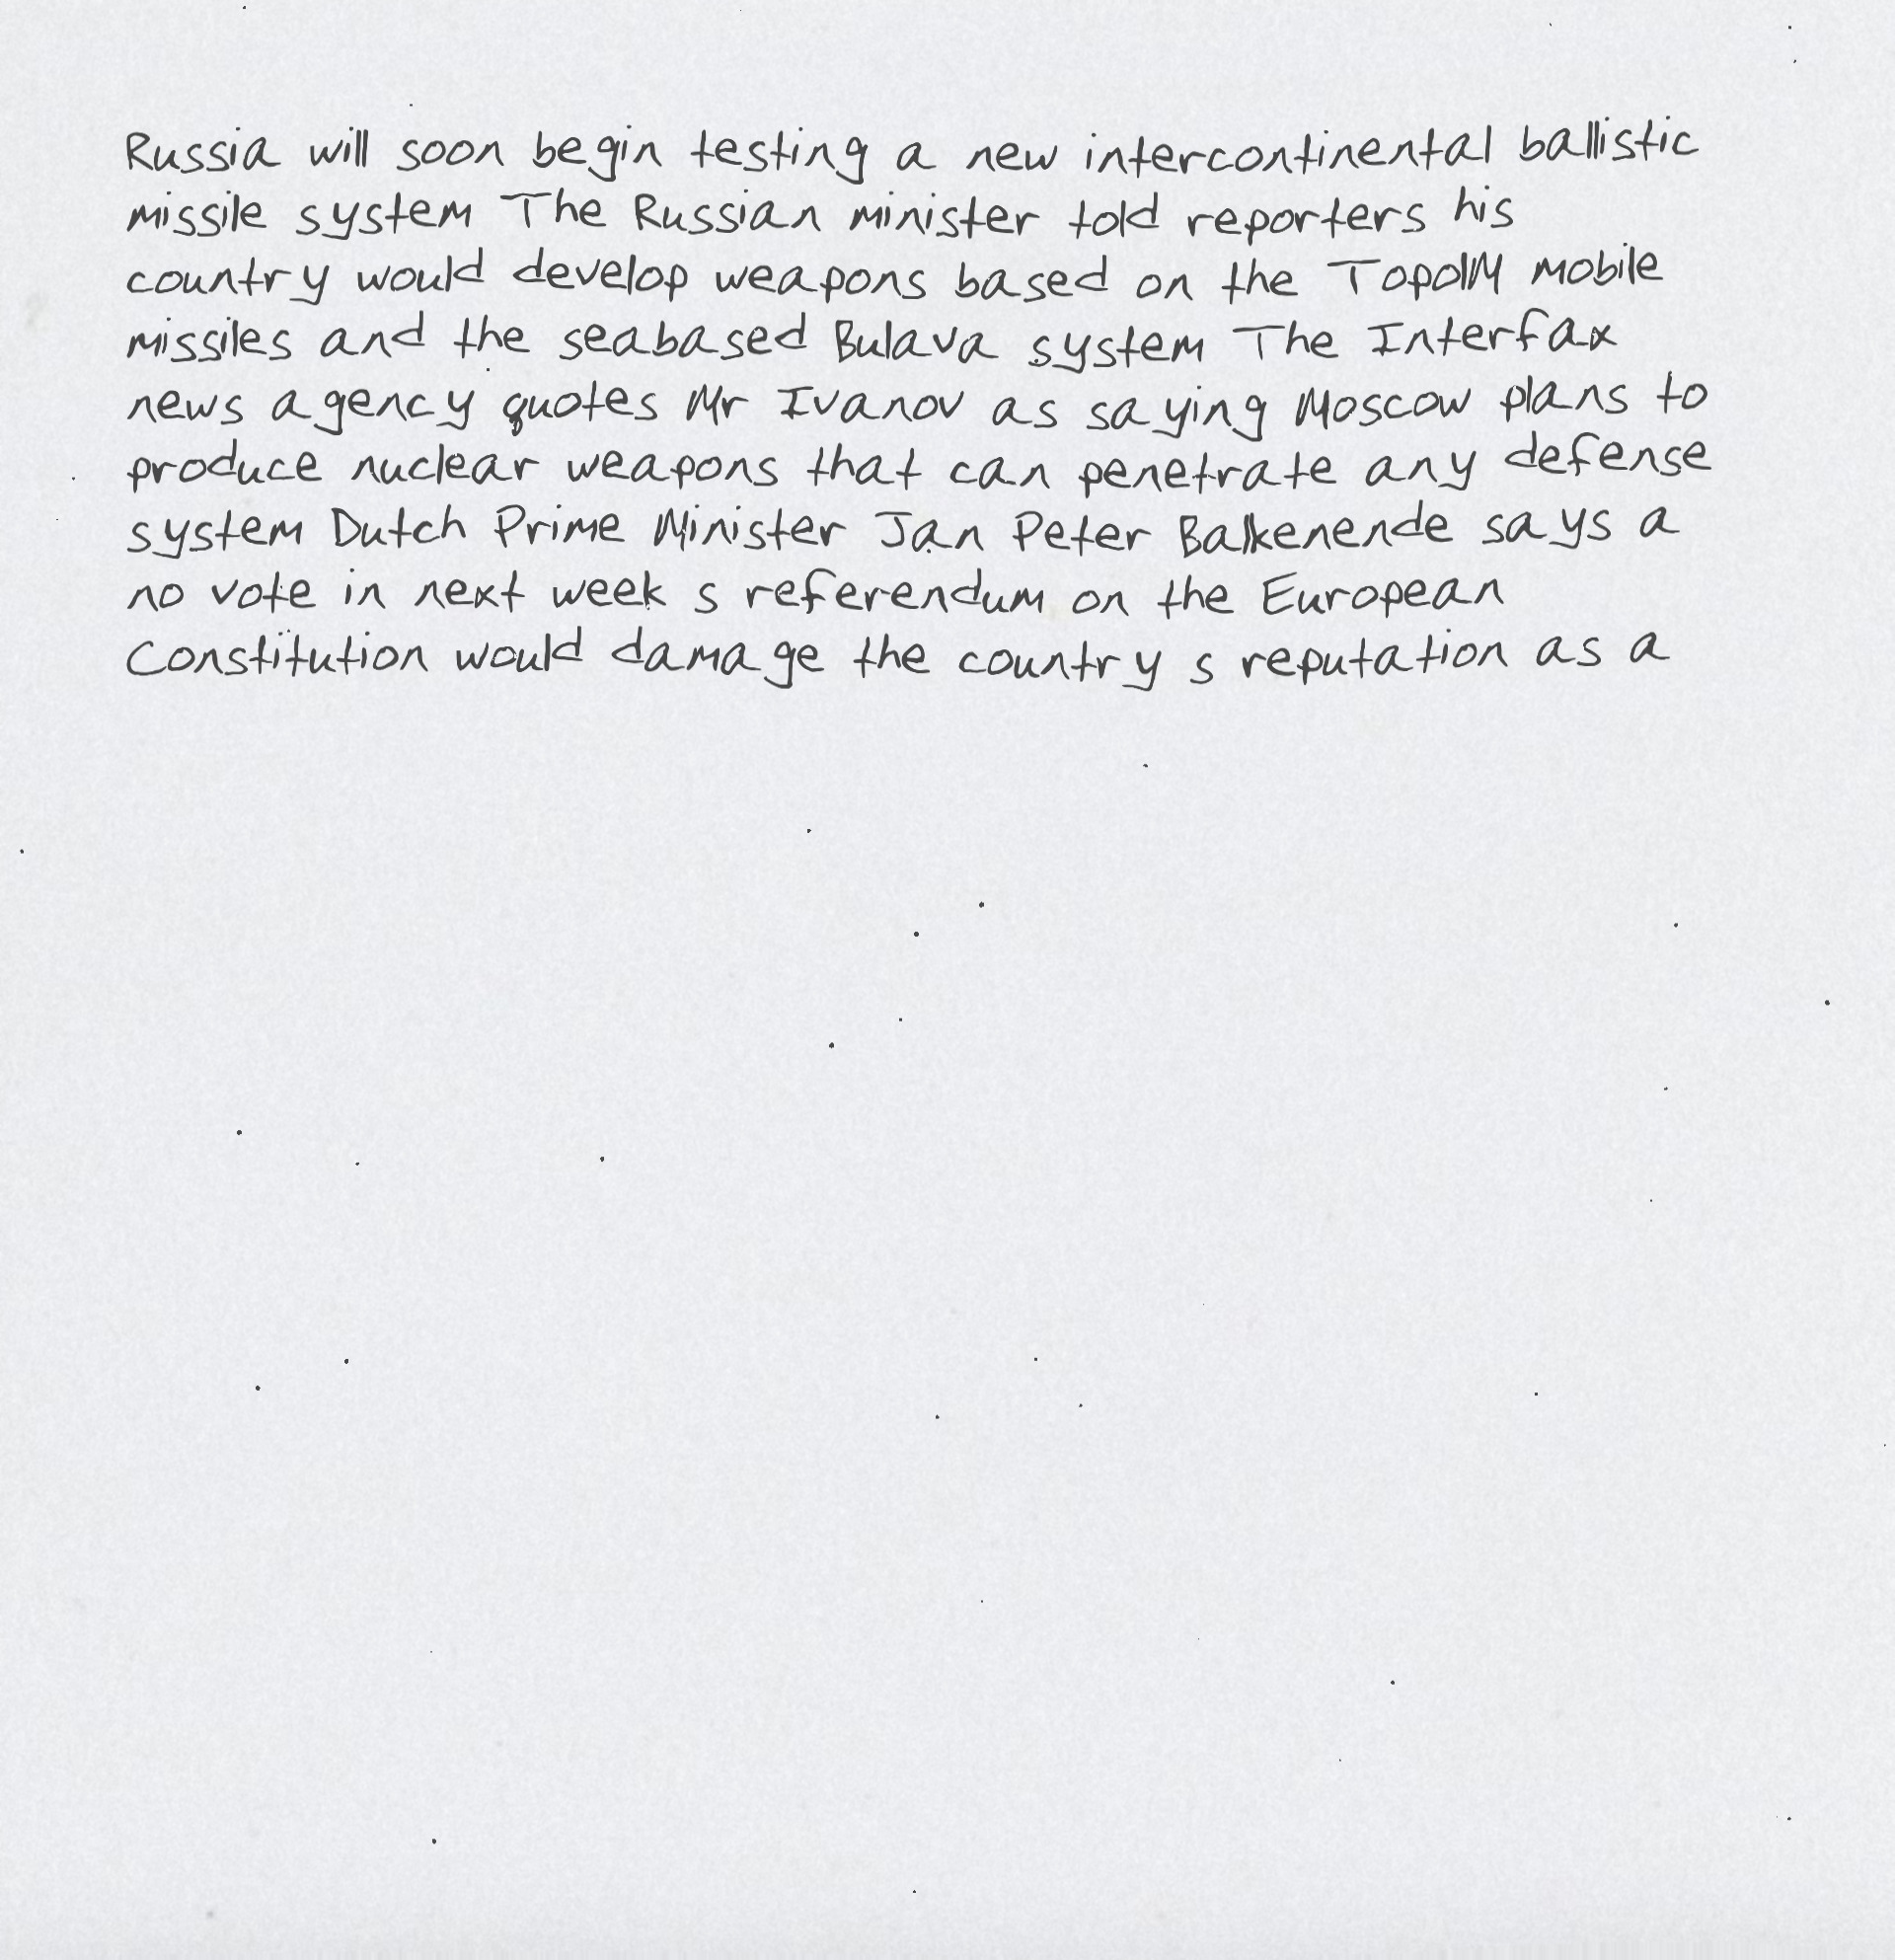 Russia will soon begin testing a new intercontinental ballistic
missile system The Russian minister told reporters his
country would develop weapons based on the TopolM mobile
missiles and the seabased Bulava system The Interfax
news agency quotes Mr Ivanov as saying Moscow plans to
produce nuclear weapons that can penetrate any defense
system Dutch Prime Minister Jan Peter Balkenende says a
no vote in next week s referendum on the European
Constitution would damage the country s reputation as a